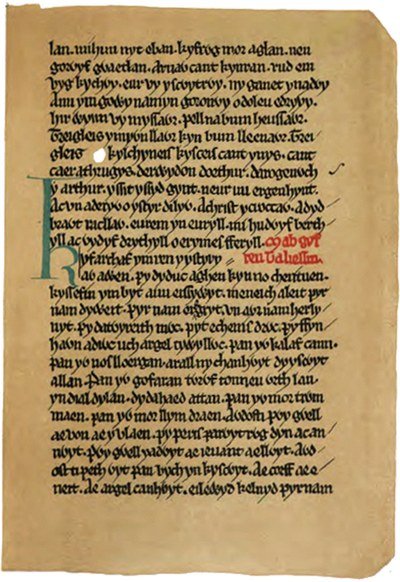 lan. mi hun nyt eban. kyfrwg mor a glan. neu
gorwyf gwaetlan. arnaw cant kynran. rud em
vyg kychwy. eur vy yscwytrwy. ny ganet yn adwy
a uu ym gowy namyn goronwy o doleu edrywy.
hir wynn vy myssawr. pell na bum heussawr.
treigleis y mywn llawr kyn bum lleenawr. trei
gleis kylchyneis kysceis cant ynys. cant
caer athrugys. derwydon doethur. darogenwch
y arthur. yssit yssyd gynt. neur mi ergenhynt.
ac vn aderyw o ystyr dilyw. a christ y croccaw. a dyd
brawt racllaw. eurem yn euryll. mi hudwyf berth
yll ac wydyf drythyll o erymes fferyll. mabgyf
reu taliessin.
Kyfarchaf ym ren y ystyry
aw awen. py dyduc aghen kyn no cherituen.
kysseuin ym byt a uu eissywyt. meneich aleit pyr
nam dyweit. pyr nam eregyt. vn awr nam herly
nyt. py datwyreith mwc. pyt echenis drwc. py ffyn
hawn a diwc uch argel tywyllwc. pan yw kalaf cann.
pan yw nos lloergan. arall ny chanhwyt dy yscwyt
allan. pan yw gofaran twrwf tonneu wrth lan.
yn dial dylan. dydahaed attan. pan yw mor trwm
maen. pan yw mor llym draen. awdosti pwy gwell
ae von ae y vlaen. py peris parwyt rwg dyn ac an
nwyt. pwy gwell y adwyt ae ieuanc ae llwyt. awd
osti peth wyt pan vych yn kyscwyt. ae corff ae e
neit. ae argel canhwyt. eilewyd keluyd pyr nam